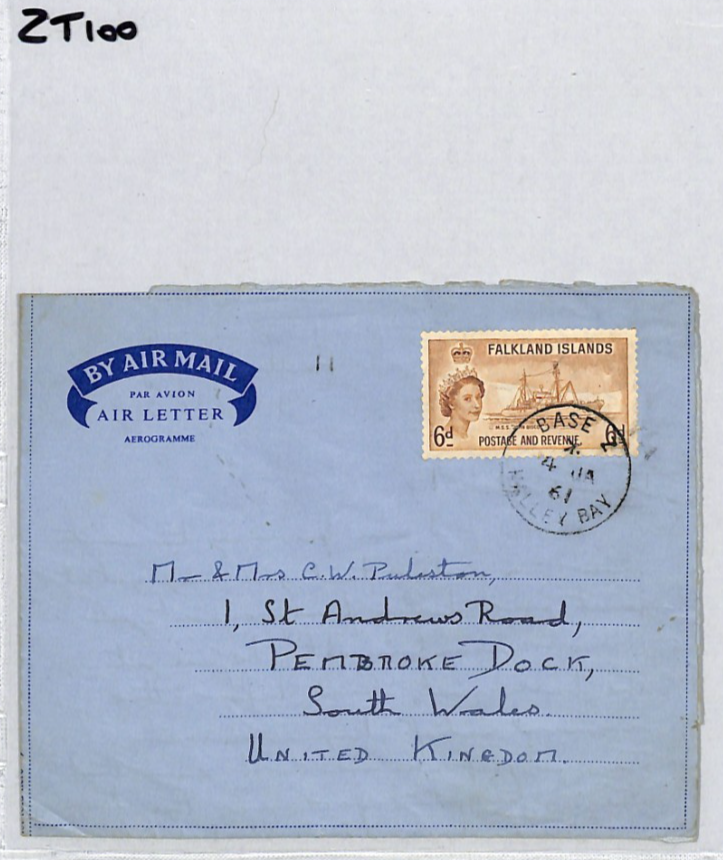 ZT100
BY AIR MAIL
PAR AVION
AIR LETTER
AEROGRAMME
FALKLAND ISLANDS
6d 6d
POSTAGE AND REVENUE
BASE Z
4 JA
61
HALLEY BAY
Mr & Mrs C.W. Puleston,
1, St Andrews Road,
PEMBROKE DOCK,
South Wales.
UNITED KINGDOM.